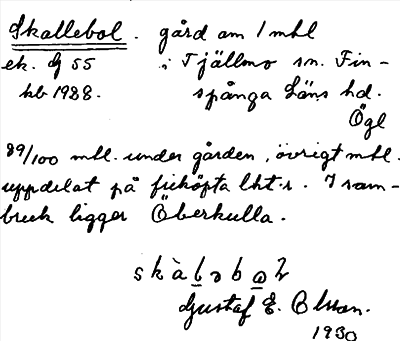 Skallebol. gård om 1 mtl
ek. bl 55 i Tjällmo sn. Fin-
hb 1988. spånga Läns hd.
Ögl
89/100 mtl. under gården, övrigt mtl.
uppdelat på friköpta lht.r. I sam-
bruk ligger Överkulla.
Gustaf E. Olsson.
1930